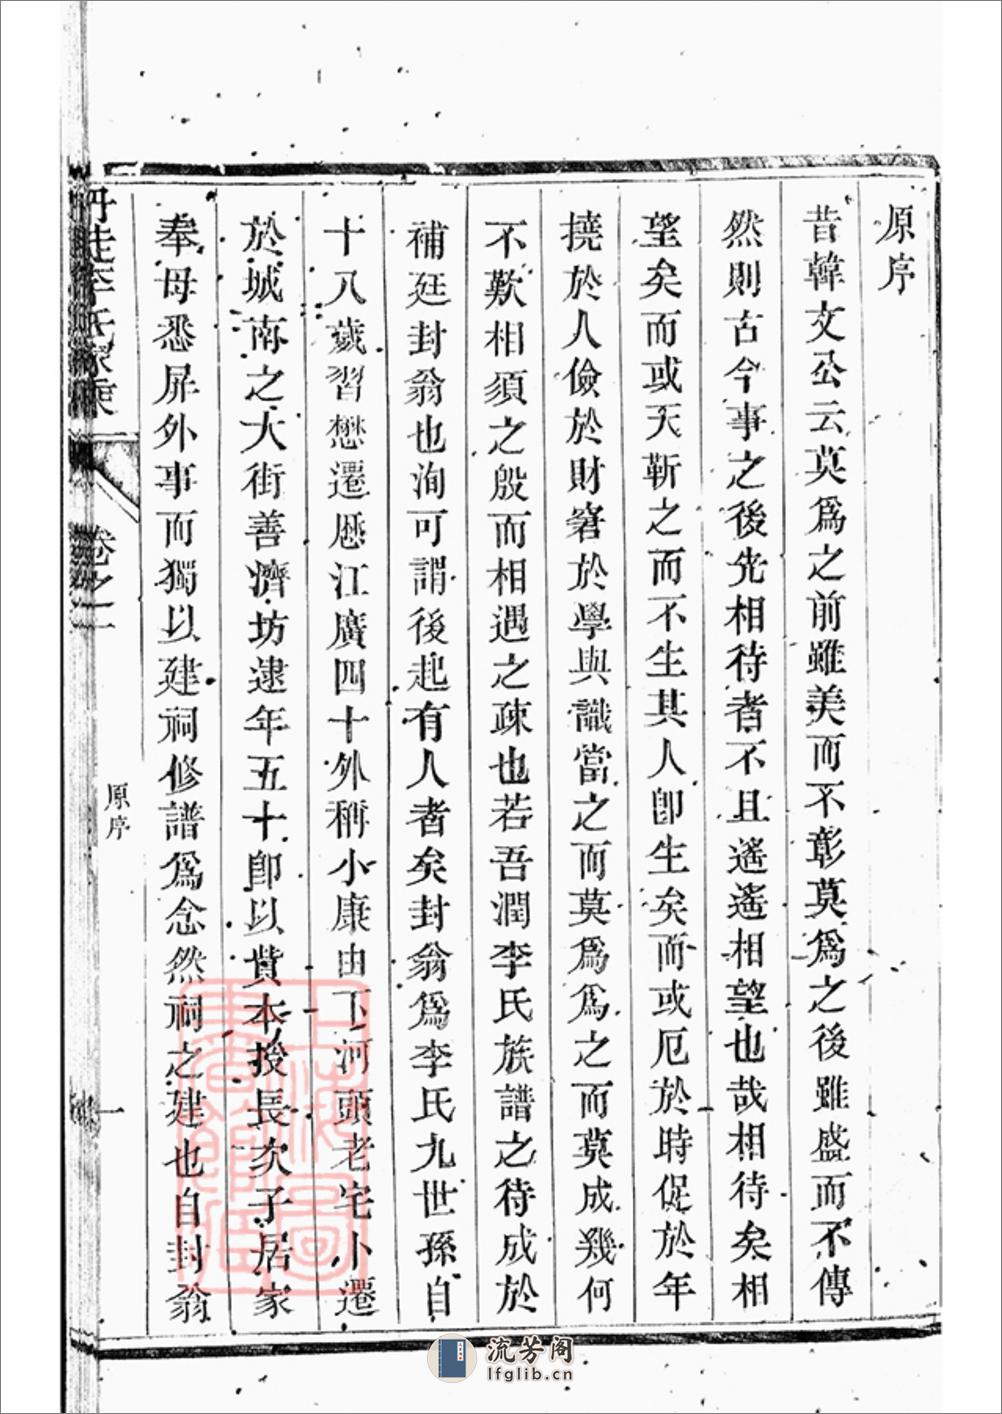 原序
昔韓文公云莫爲之前雖美而不彰莫爲之後雖盛而不傳
然則古今事之後先相待者不且遙遙相望也哉相待矣相
望矣而或天靳之而不生其人卽生矣而或厄於時促於年
撓於人儉於財窘於學與識當之而莫爲爲之而莫成幾何
不歎相須之殷而相遇之疎也若吾潤李氏族譜之待成於
補廷封翁也洵可謂後起有人者矣封翁爲李氏九世孫自
十八歲習懋遷歷江廣四十外稱小康由下河頭老宅小遷
於城南之大街善濟坊逮年五十卽以貲本授長次子居家
奉母悉屏外事而獨以建祠修譜爲念然祠之建也自封翁
丹徒李氏家乘
卷之一
原序
一
上海圖書館藏
流芳阁
lfglib.cn